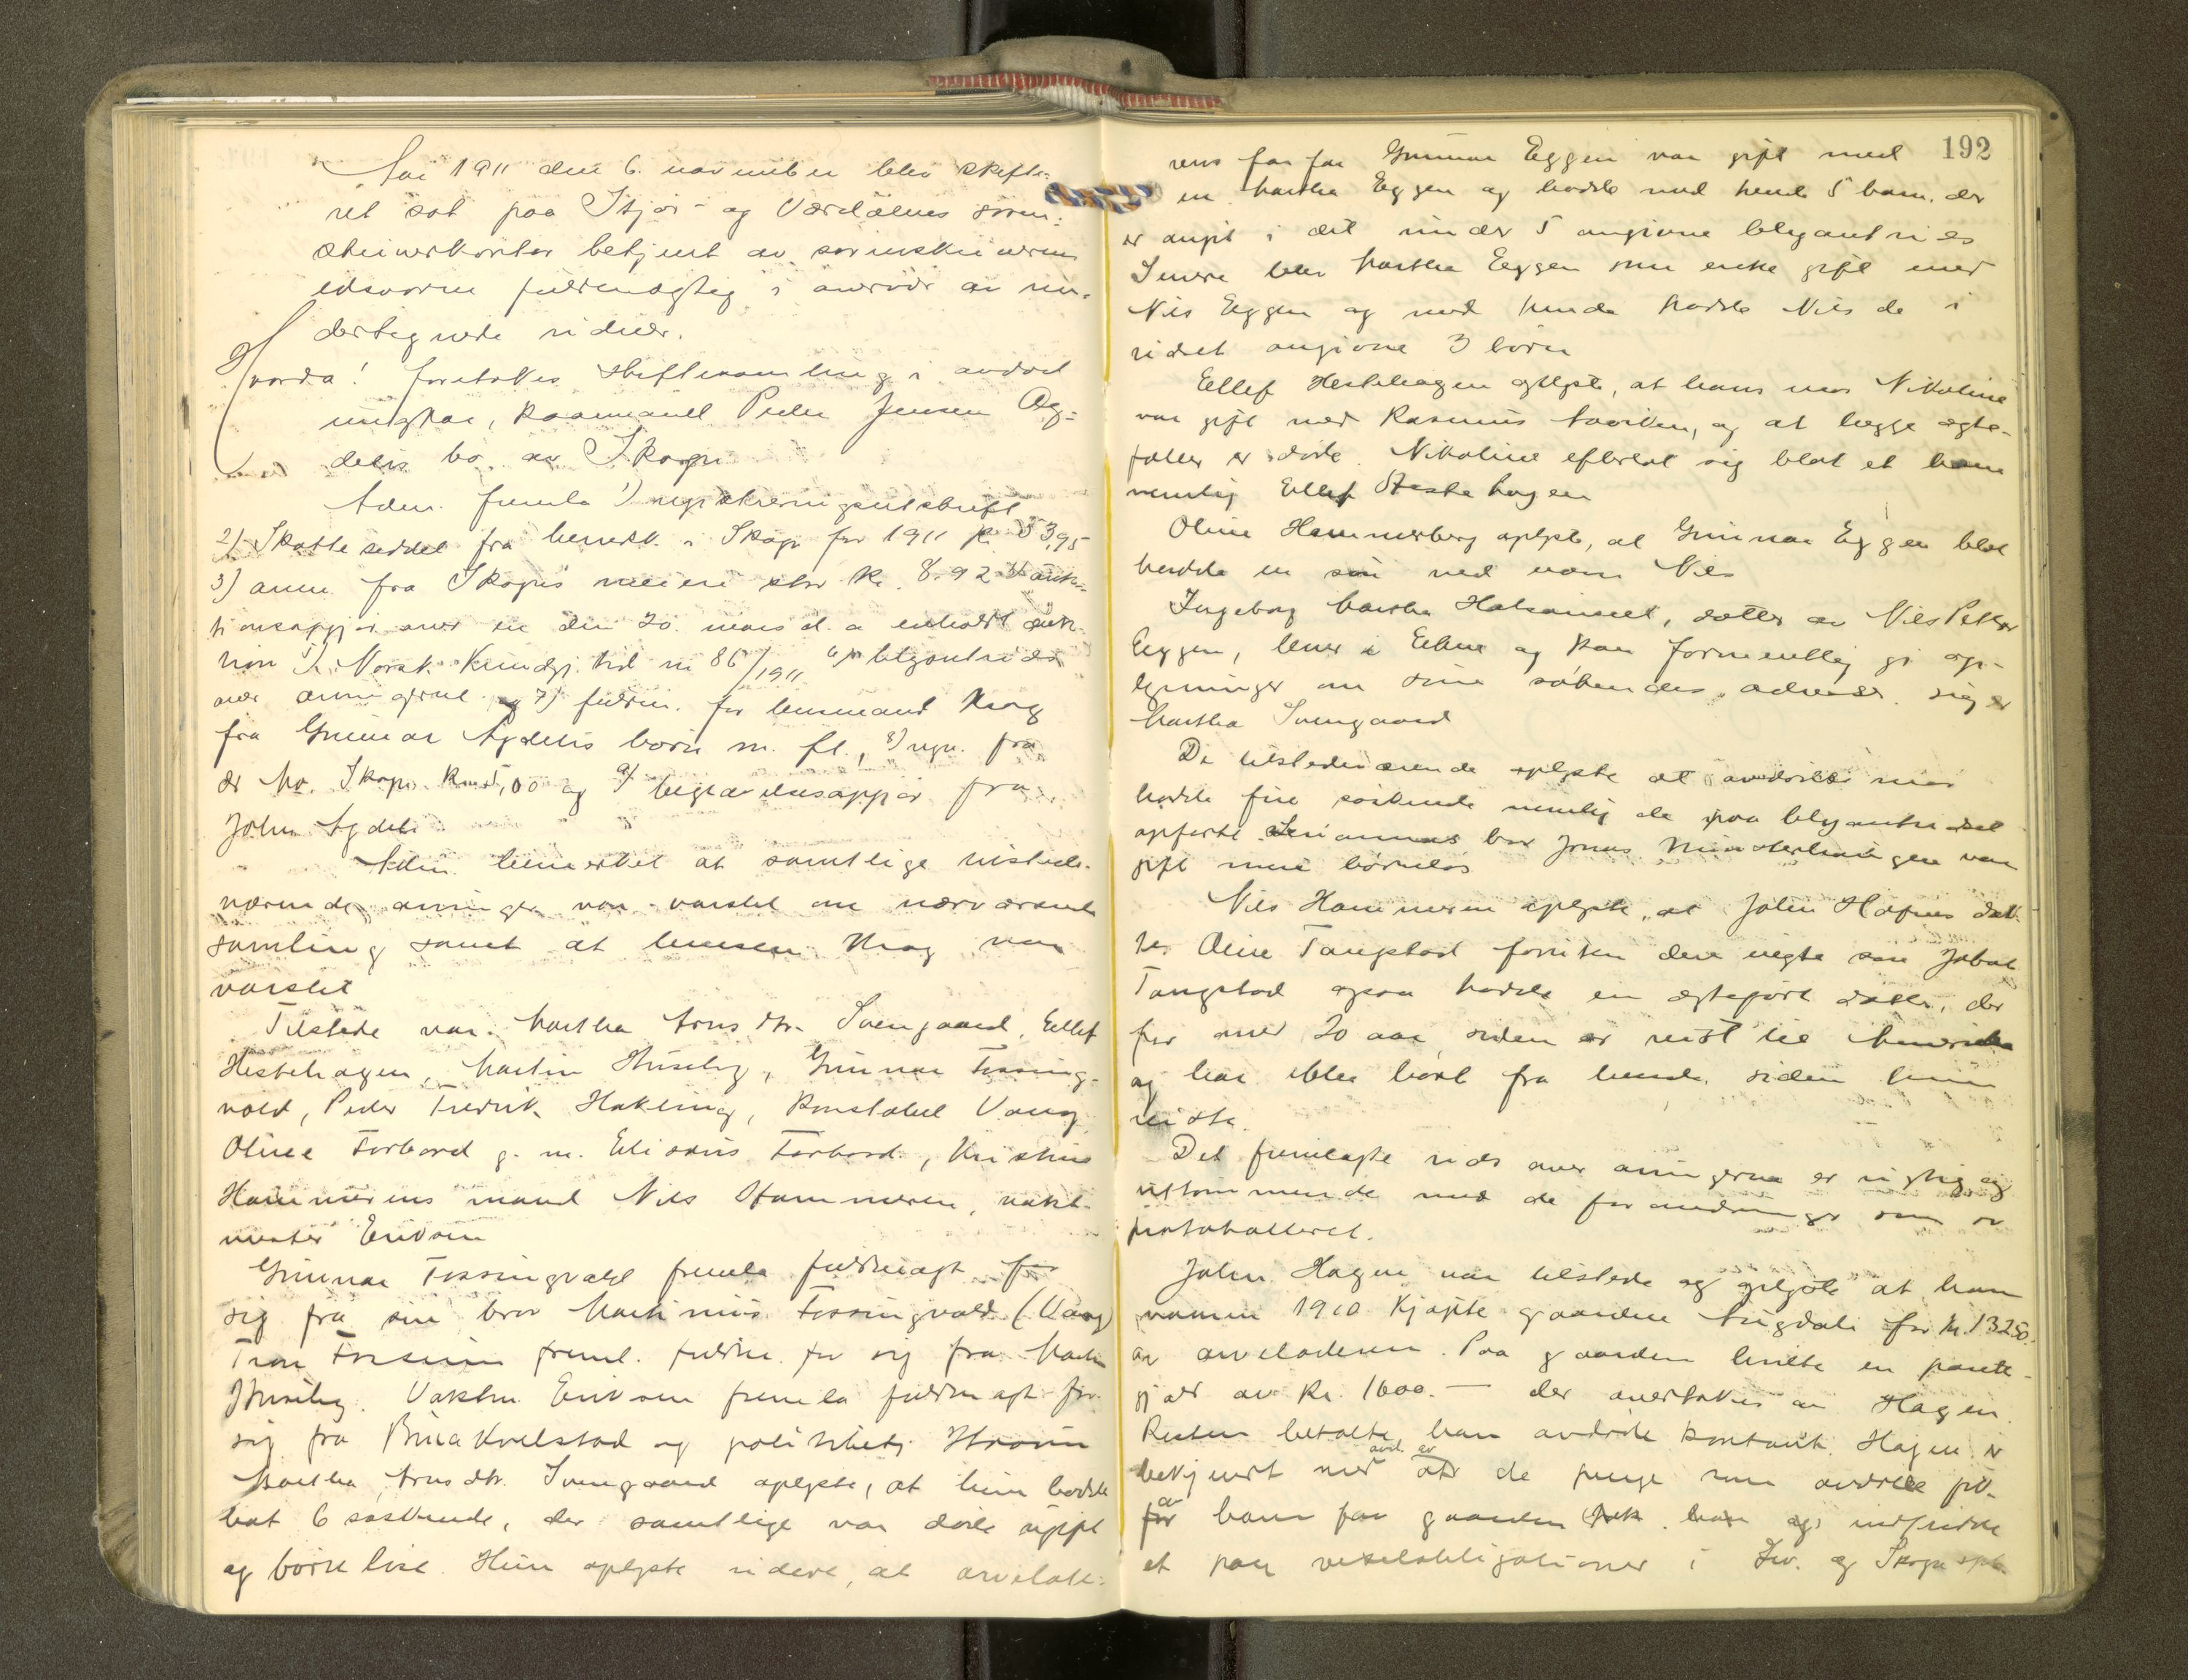 Aar 1911 den 6. november blev skifte-
ret sat paa Stjør- og Værdalens soren-
skriverkontor betjent av sorenskriverens
edsvorne fuldmægtig i overvær av un-
dertegnede vidner.
Hvorda! foretokes skiftesamling i avdød
ungkar, kaarmand Peder Jensen Ag-
delis bo av Skogn
Adm. fremla 1) registreringsutskrift
2) Skatteseddel fra herredsk. i Skogn for 1911 kr. 53,95
3) anm. fra Skogns meieri stor kr. 8.92 4) auk-
tionsopgjør over en den 20. mars d. a. avholdt auk-
tion 5) Norsk Kundgj. tid nr 86/1911 6) blyantrids
over arvingerne og 7) fuldm. for lensmand Krog
fra Gunnar Agdelis børn m. fl., 8) regn. fra
dr Mo. Skogn kr 5,00 og 9) begravelsesopgjør fra
John Agdeli
Adm. bemerket at samtlige tilstede-
værende arvinger var varslet om nærværende
samling samt at lensm. Krog var
varslet
Tilstede var Martha Arnsdtr. Svengaard, Ellef
Hestehagen, Martin Huseby, Gunnar Fossing-
vald, Peder Fredrik Hokling, konstabel Vang
Oline Forbord g. m. Elisæus Forbord, Kristine
Hammerens mand Nils Hammeren, vakt-
mester Eriksen
Gunnar Fossingvald fremla fuldmagt for
sig fra sin bror Martinus Fossingvald (Vang)
freml. fuldm. for sig fra Martin
Huseby. Vaktm. Eriksen fremla fuldmagt for
sig fra Kvelstad og politibetj.
Martha Arnsdtr. Svengaard oplyste, at hun hadde
hat 6 søskende, der samtlige var døde ugift
og barnløse. Hun oplyste videre, at arvelate-
192
rens farfar Gunnar Eggen var gift med
en Martha Eggen og hadde med hende 5 barn, der
er angit i det under 5 angivne blyantrids
Senere blev Martha Eggen som enke gift med
Nils Eggen og med hende hadde Nils de i
ridset angivne 3 børn
Ellef Hestehagen oplyste, at hans mor Nikoline
var gift med Rasmus, og at begge egte-
fæller er døde. Nikoline efterlot sig blot et barn
nemlig Ellef Hestehagen
Oline Hammerberg oplyste, at Gunnar Eggen blot
hadde en søn ved navn Nils
Ingeborg Martha Halsaunet, datter av Nils Petter
Eggen, lever i og kan formentlig gi op-
lysninger om sine søskendes adresser. sig er
Martha Svengaard
De tilstedeværende oplyste at avdødes mor
hadde fire søskende nemlig de paa blyantridset
opførte. bror Jonas var
gift men barnløs
Nils Hammeren oplyste, at John Hofnes dat-
ter Oline Tangstad foruten den uegte søn Johan
Tangstad ogsaa hadde en egtefødt datter, der
for over 20 aar siden er reist til Amerika
og har ikke hørt fra hende siden hun
reiste.
Det fremlagte rids over arvingerne er rigtig og
utkommende med de forandringer som er
protokolleret.
John Hagen var tilstede og oplyste at han
vaaren 1910 kjøpte gaarden Augdali for kr. 13250
av arveladeren. Paa gaarden heilte en pante-
gjæld av kr. 1600.— der overtokes av Hagen.
Resten betalte han avdøde kontant. Hagen er
bekjendt med at av de penge som avdøde fik
av ham for gaarden fik han og indfridde
et par vekselobligationer i Lev. og Skogn spb.